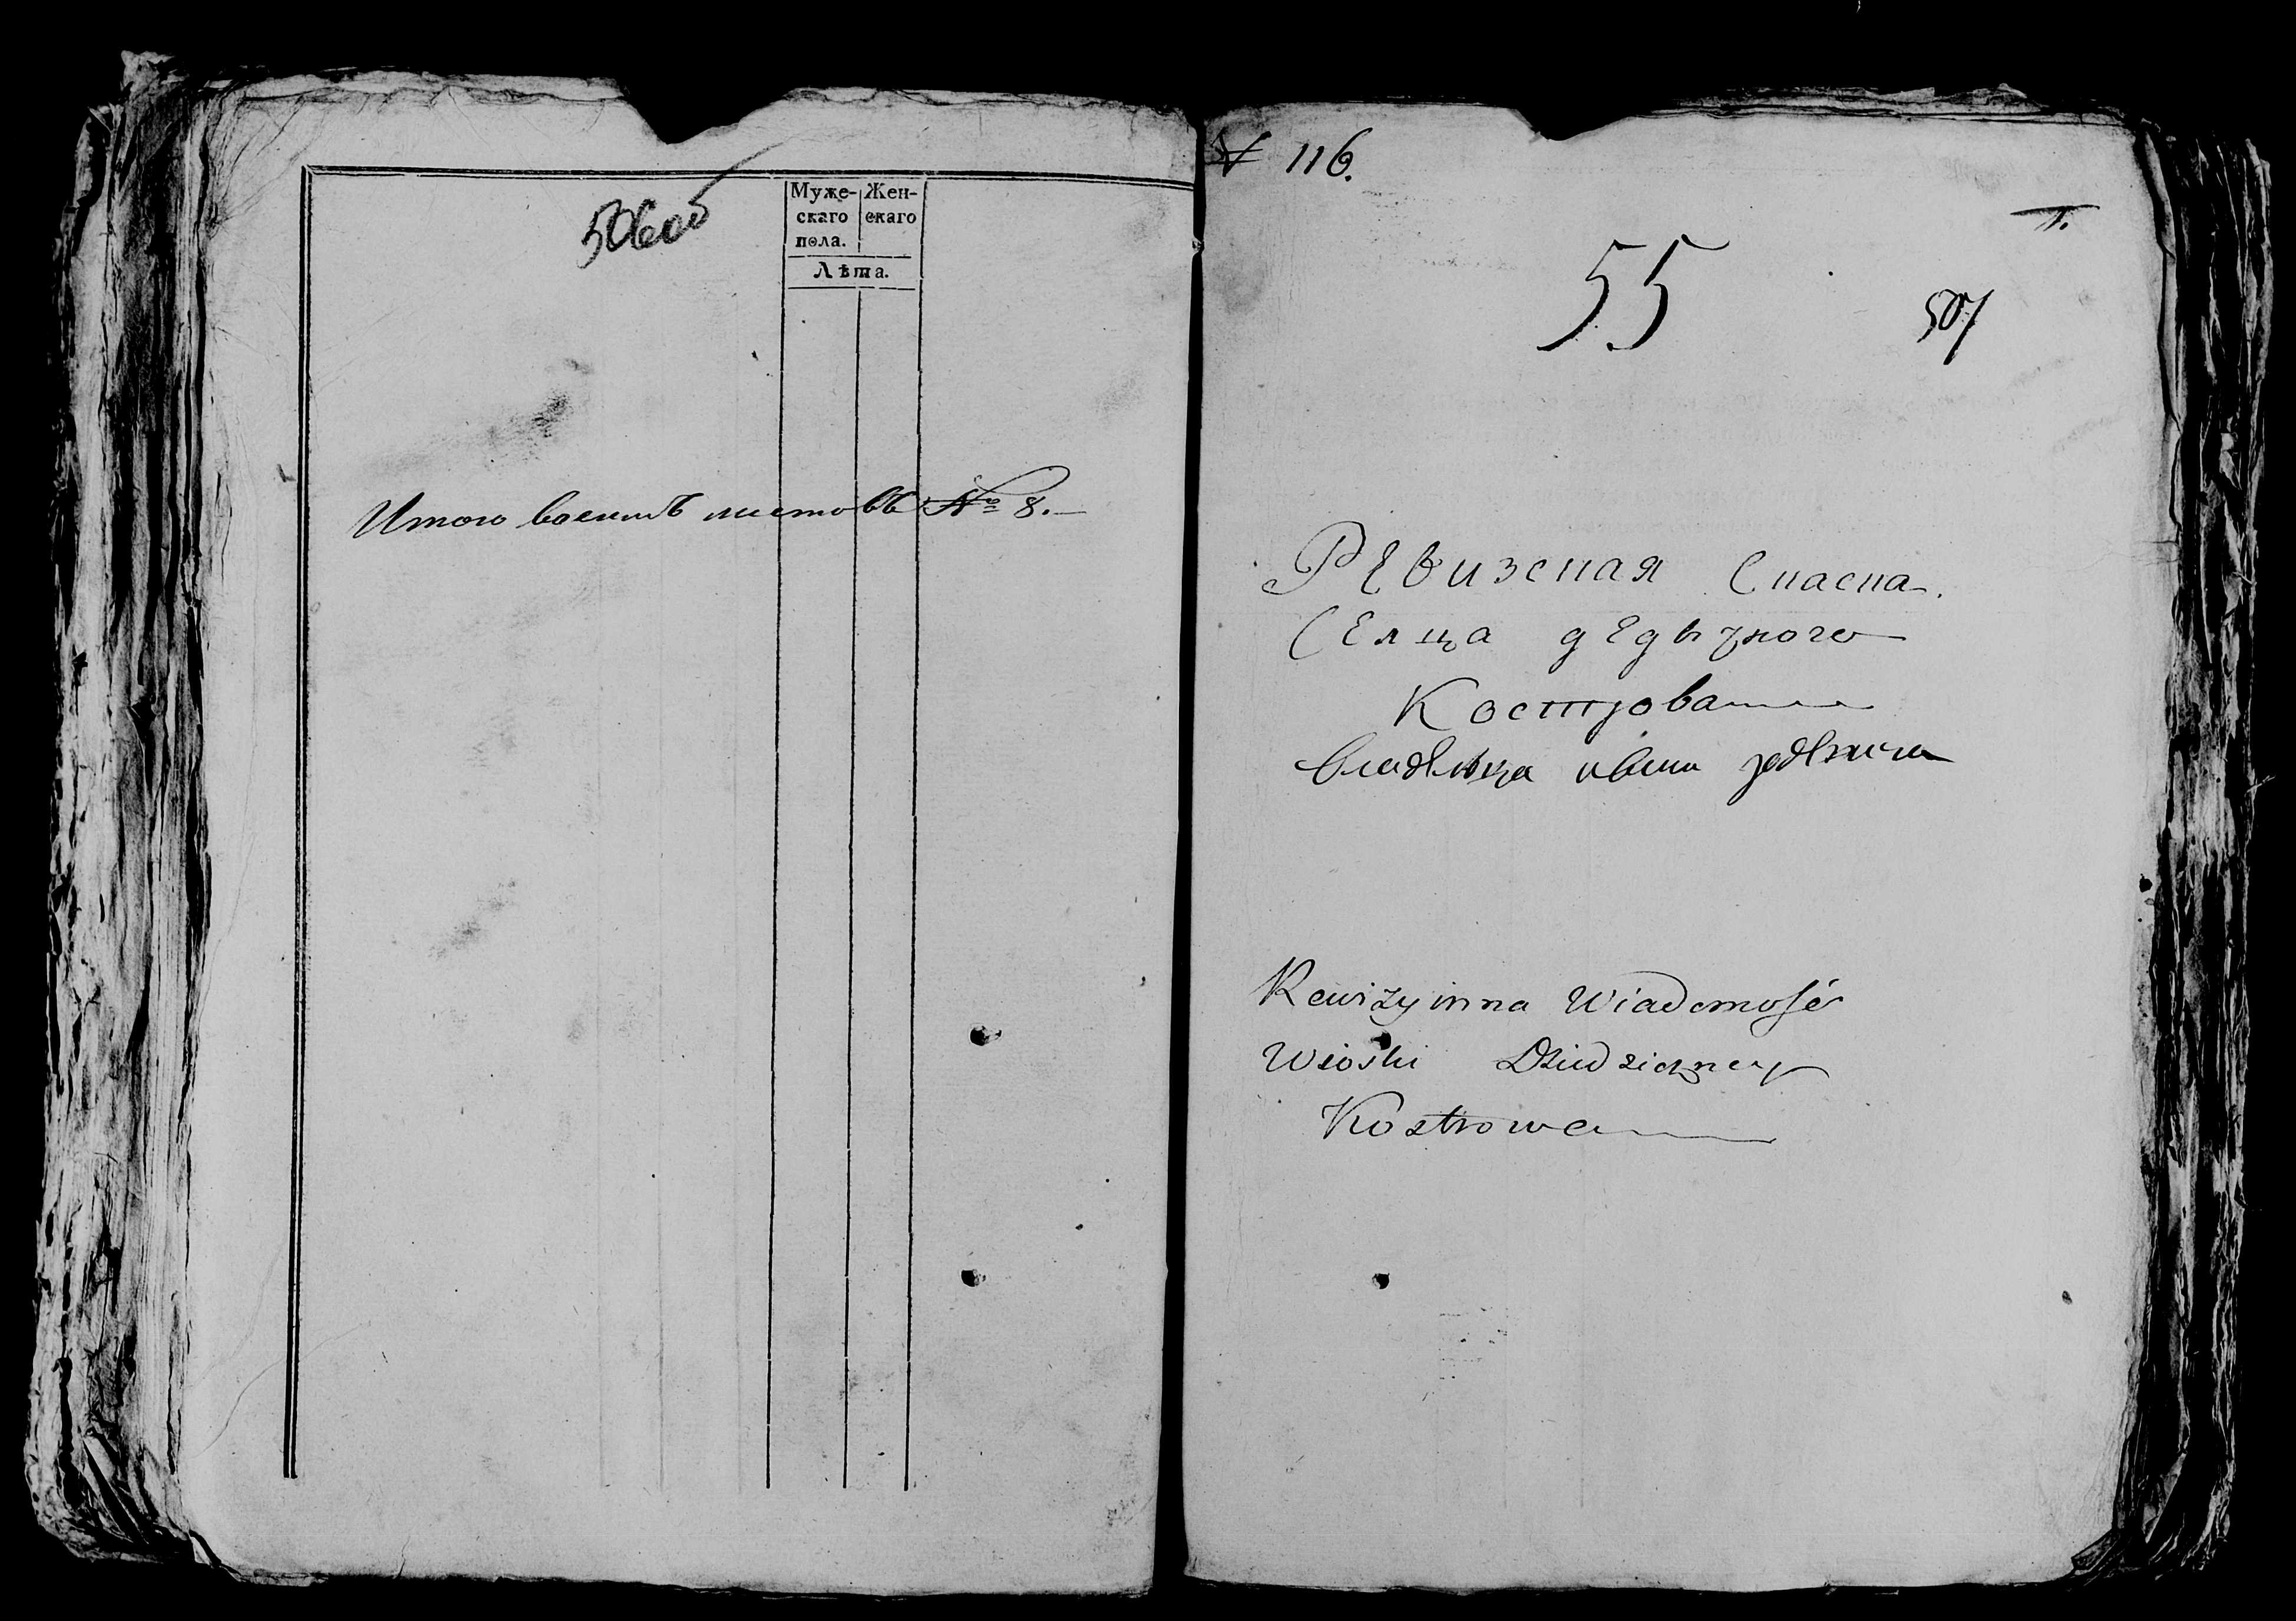 506 об
Муже- Жен-
скаго скаго
пола.
Лѣта.
Итого восемъ листовъ № 8.
№ 116.
1.
55
507
Ревизская Скаска
Селца дедизного
Костровате
владельца
Rewizyinna Wiadomość
Wioski Dziedziczney
Kostrowa